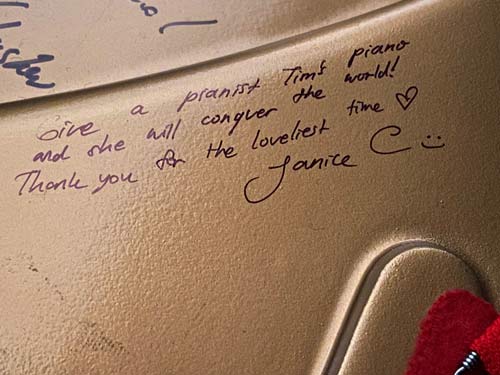 Give a pianist Tim's piano
and she will conquer the world!
Thank you for the loveliest time ♡
Janice C :)